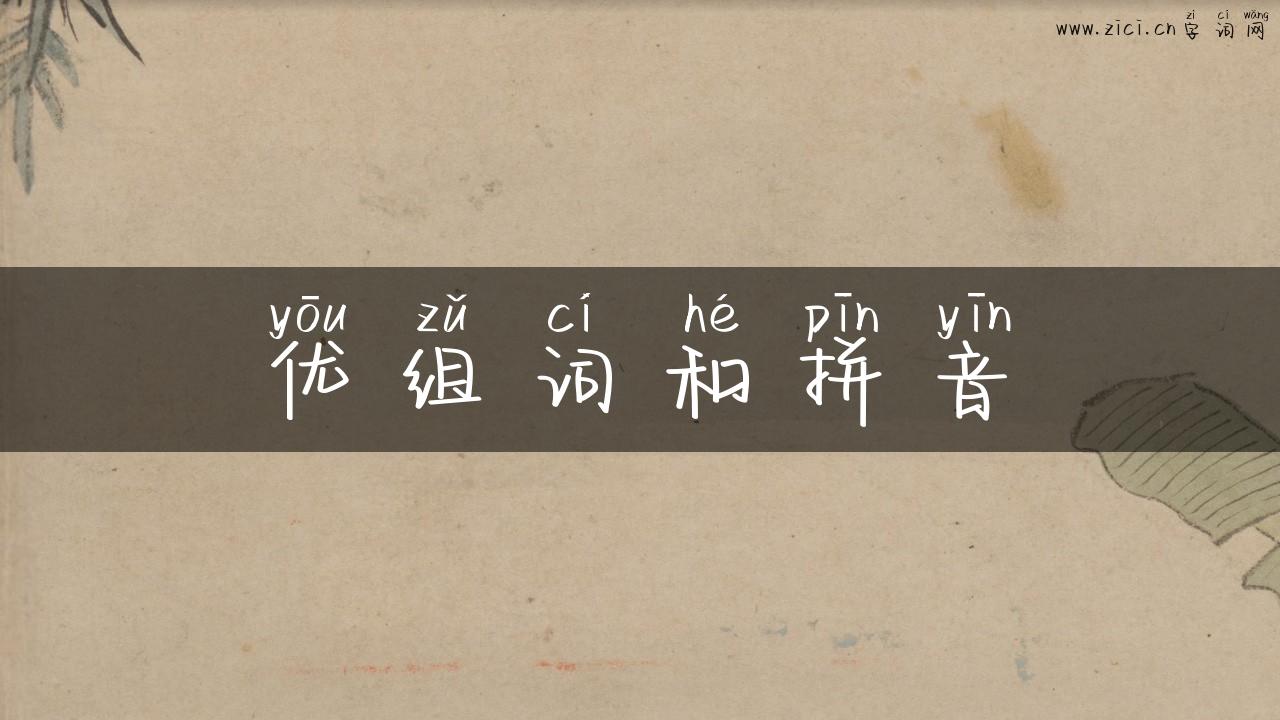 zì cí wǎng
www.zici.cn 字 词 网
yōu zǔ cí hé pīn yīn
优 组 词 和 拼 音